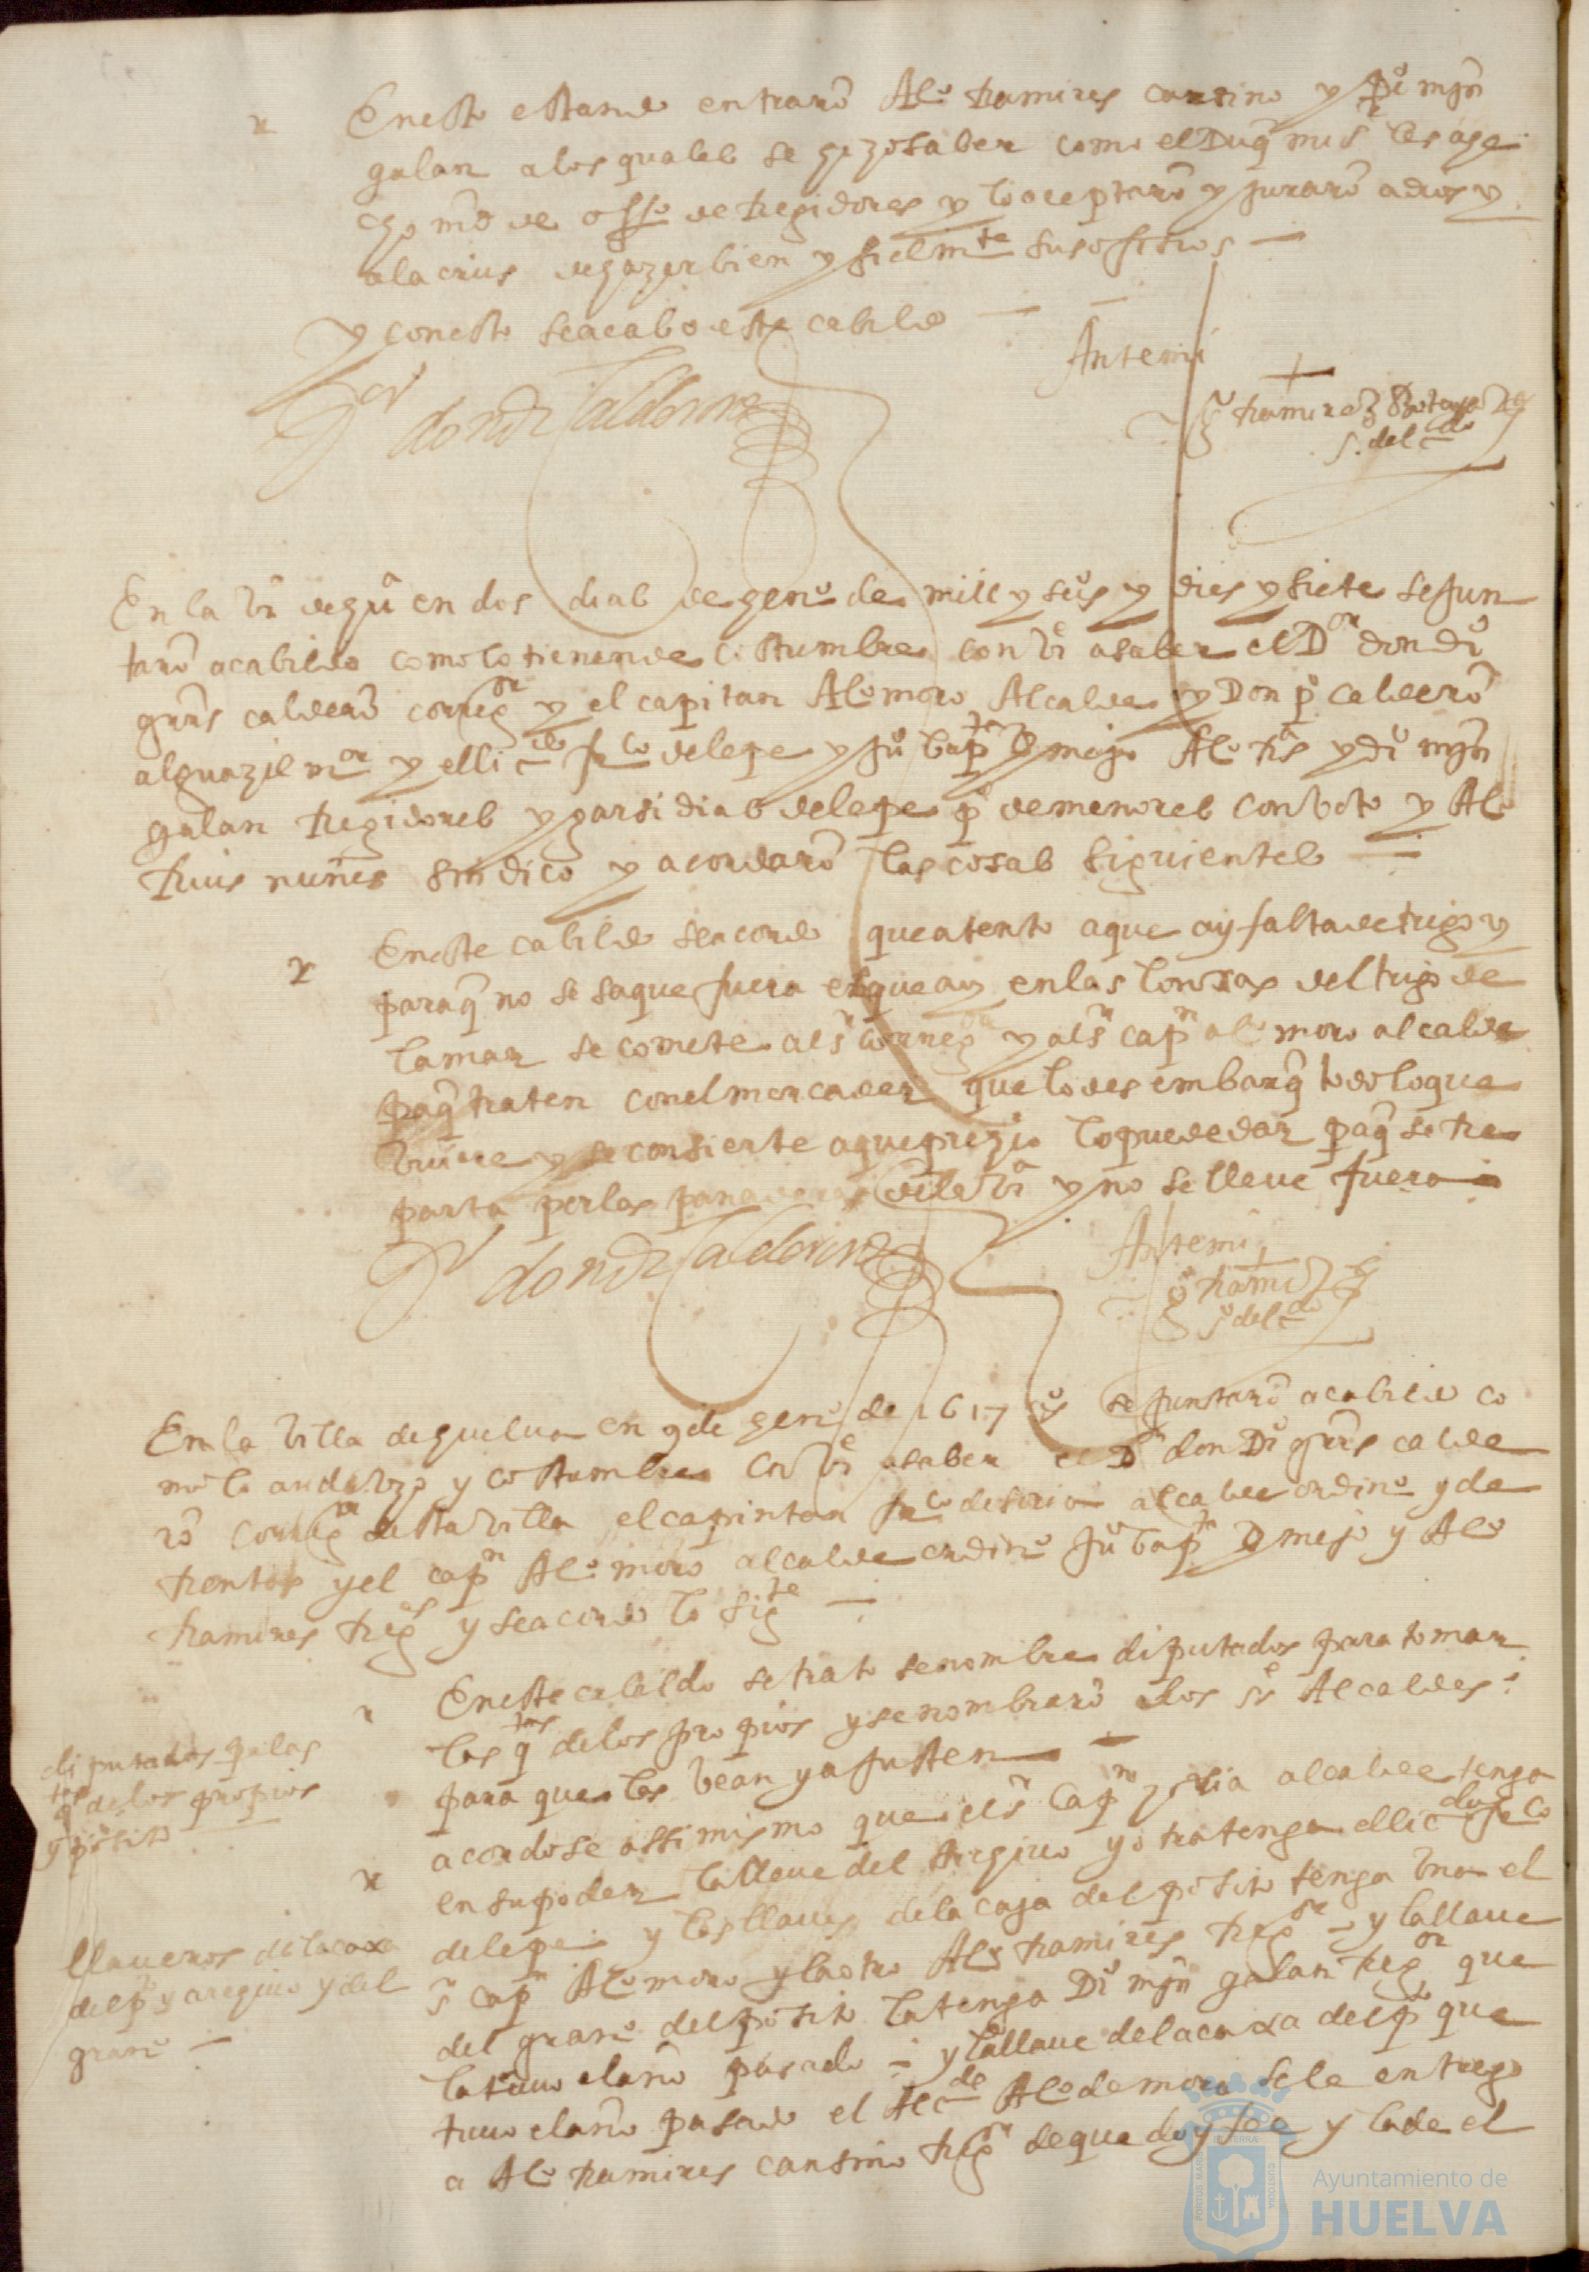 En esto estando entraro Alo Ramires cansino y Do myn
galan a los quales se hizo saber como el Duq mi sr les a he
cho md de offo de Regidores y lo aceptaro y juraro a dios y
a la crus de hazer bien y fielmte sus offisios —
y con esto se acabo este cabildo —
Antemi
Dor don do Calderon
Ramirez
s. del cdo
En la va de gua en dos dias de heno de mill y seiso y dies y siete se jun
taro a cabildo como lo tienen de costumbre conbi a saber el Dor don do
grrs caldero correg or y el capitan Alo moro Alcalde y Don po caldero
alguazil mor y el licdo fco de lepe y Ju bapta Dmejo Alo Rs y do myn
galan Regidores y garsi dias de lepe po de menores con boto y Alo
Ruis nuñes sindico y acordaro las cosas siguientes —
x En este cabildo se acordo que atento a que ay falta de trigo y
para q no se saque fuera el que ay en las lonxas del trigo de
la mar se comete al sr correg or y al sr capn alo moro alcalde
pa q traten con el mercader que lo desembarq todo lo que
tuuiere y se consierte a que presio lo puede dar pa q se re
parta por las panaderas de la va y no se lleue fuera —
Dr don do Calderon
Antemi
Rami
so del cdo
En la billa de guelua en 9 de heno de 1617 as se juntaro a cabildo co
mo lo an de vzo y costumbre conbi a saber el Dr don Do grrs calde
ro correg or desta billa el capintan fco de soria alcalde ordino y de
Rentas y el capn Alo moro alcalde ordino Ju bapta Dmejo y Alo
Ramires Reg es y se acordo lo sigte —
En este cabildo se trato se nombre diputados para tomar
las qtas de los propios y se nombraro a los ss Alcaldes
para que las bean y ajusten —
diputados pa las
qtas de los propios
y posito
x acordose assimismo que el sr Capn soria alcalde tenga
en su poder la llaue del Archiuo y otra tenga el licdo fco
de lepe y las llaues de la caja del posito tenga vna el
sr capn Alo moro y la otra Alo Ramires Reg or — y la llaue
del grano del posito la tenga Do myn galan Reg or que
la tuuo el año pasado — y la llaue de la caxa del pto que
tuuo el año pasado el Alcde Alo de mora se le entrego
a Alo Ramires cansino Reg or de que doy fee y la de el
llaueros de la caxa
del pto y archiuo y del
grano —
PORTUS MARIS
ET TERRÆ
CUSTODIA
Ayuntamiento de
HUELVA